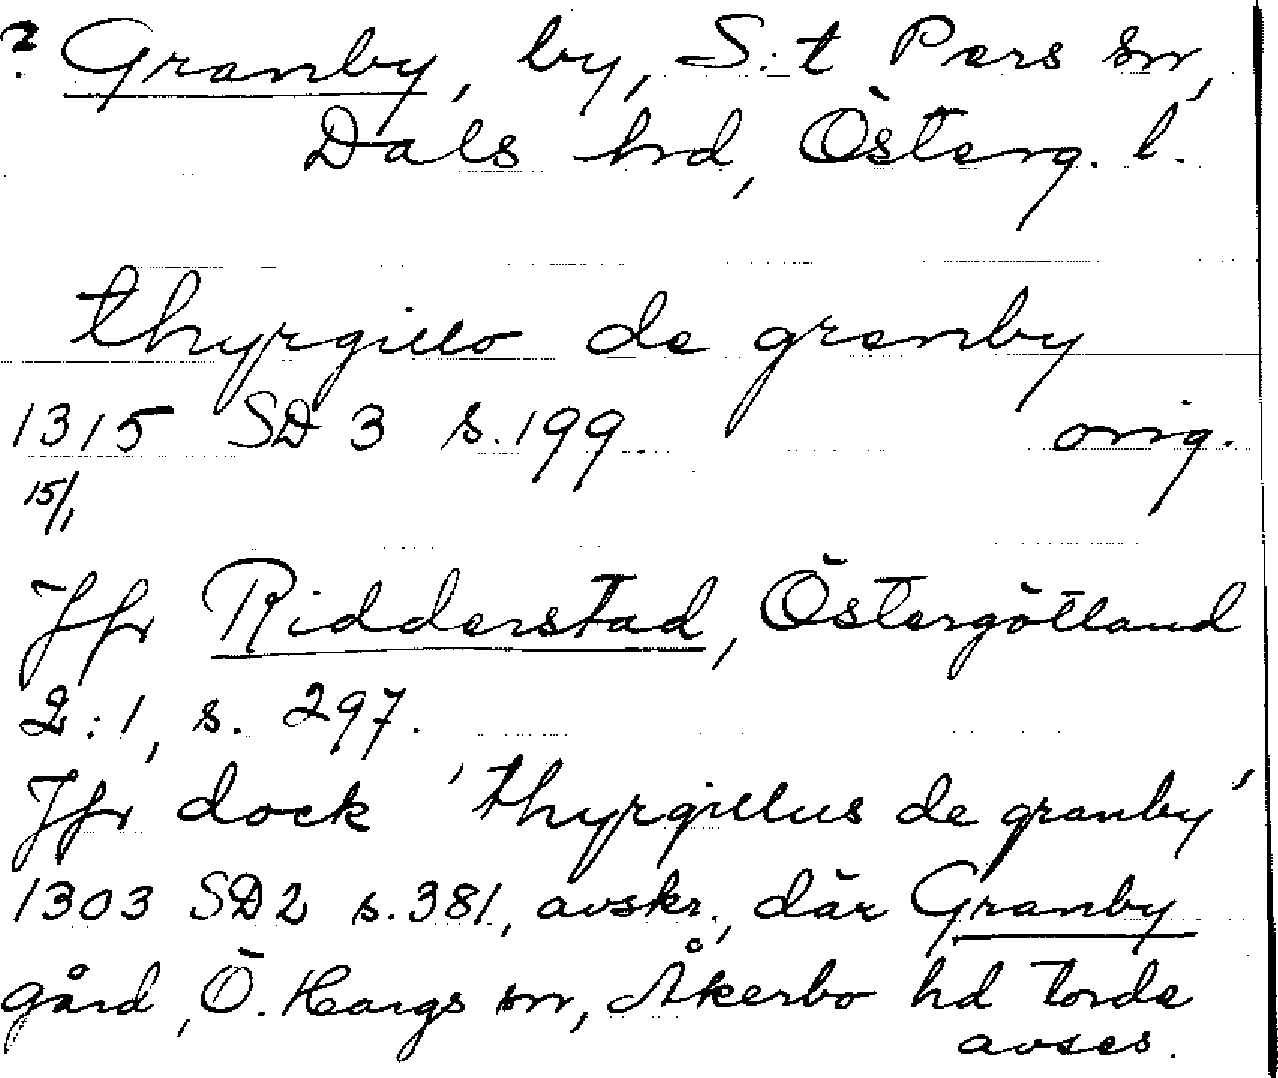 ? Granby, by, S:t Pers sn,
Dals hrd, Österg. l.
thyrgillo de granby
1315 SD 3 s. 199 orig.
15/1
Jfr Ridderstad, Östergötland
2:1, s. 297.
Jfr dock 'thyrgillus de granby'
1303 SD 2 s. 381, avskr., där Granby
gård, Ö. Hargs sn, Åkerbo hd torde
avses.